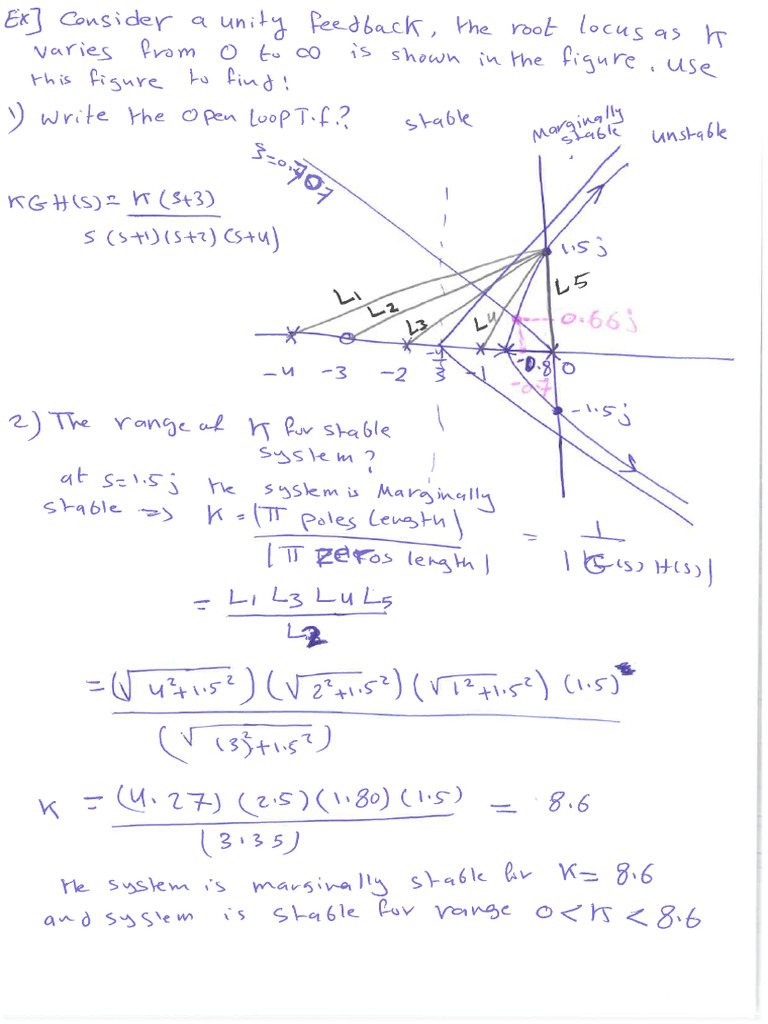 Ex] Consider a unity feedback, the root locus as K
varies from 0 to ∞ is shown in the figure. use
this figure to find:
1) write the open loop T.f.?
stable
Marginally
stable
unstable
ξ=0.707
KGH(s) = K(s+3)
s(s+1)(s+2)(s+4)
1.5j
L1
L2
L3
L4
L5
0.66j
-4 -3 -2 -4/3 -1 -0.8 0
-0.7
-1.5j
2) The range of K for stable
system?
at s=1.5j the system is Marginally
stable => K = |π poles length|
|π zeros length|
= 1
|G(s) H(s)|
= L1 L3 L4 L5
L2
= (√4²+1.5²) (√2²+1.5²) (√1²+1.5²) (1.5)
(√(3)²+1.5²)
K = (4.27) (2.5) (1.80) (1.5) = 8.6
(3.35)
the system is marginally stable for K= 8.6
and system is stable for range 0<K<8.6